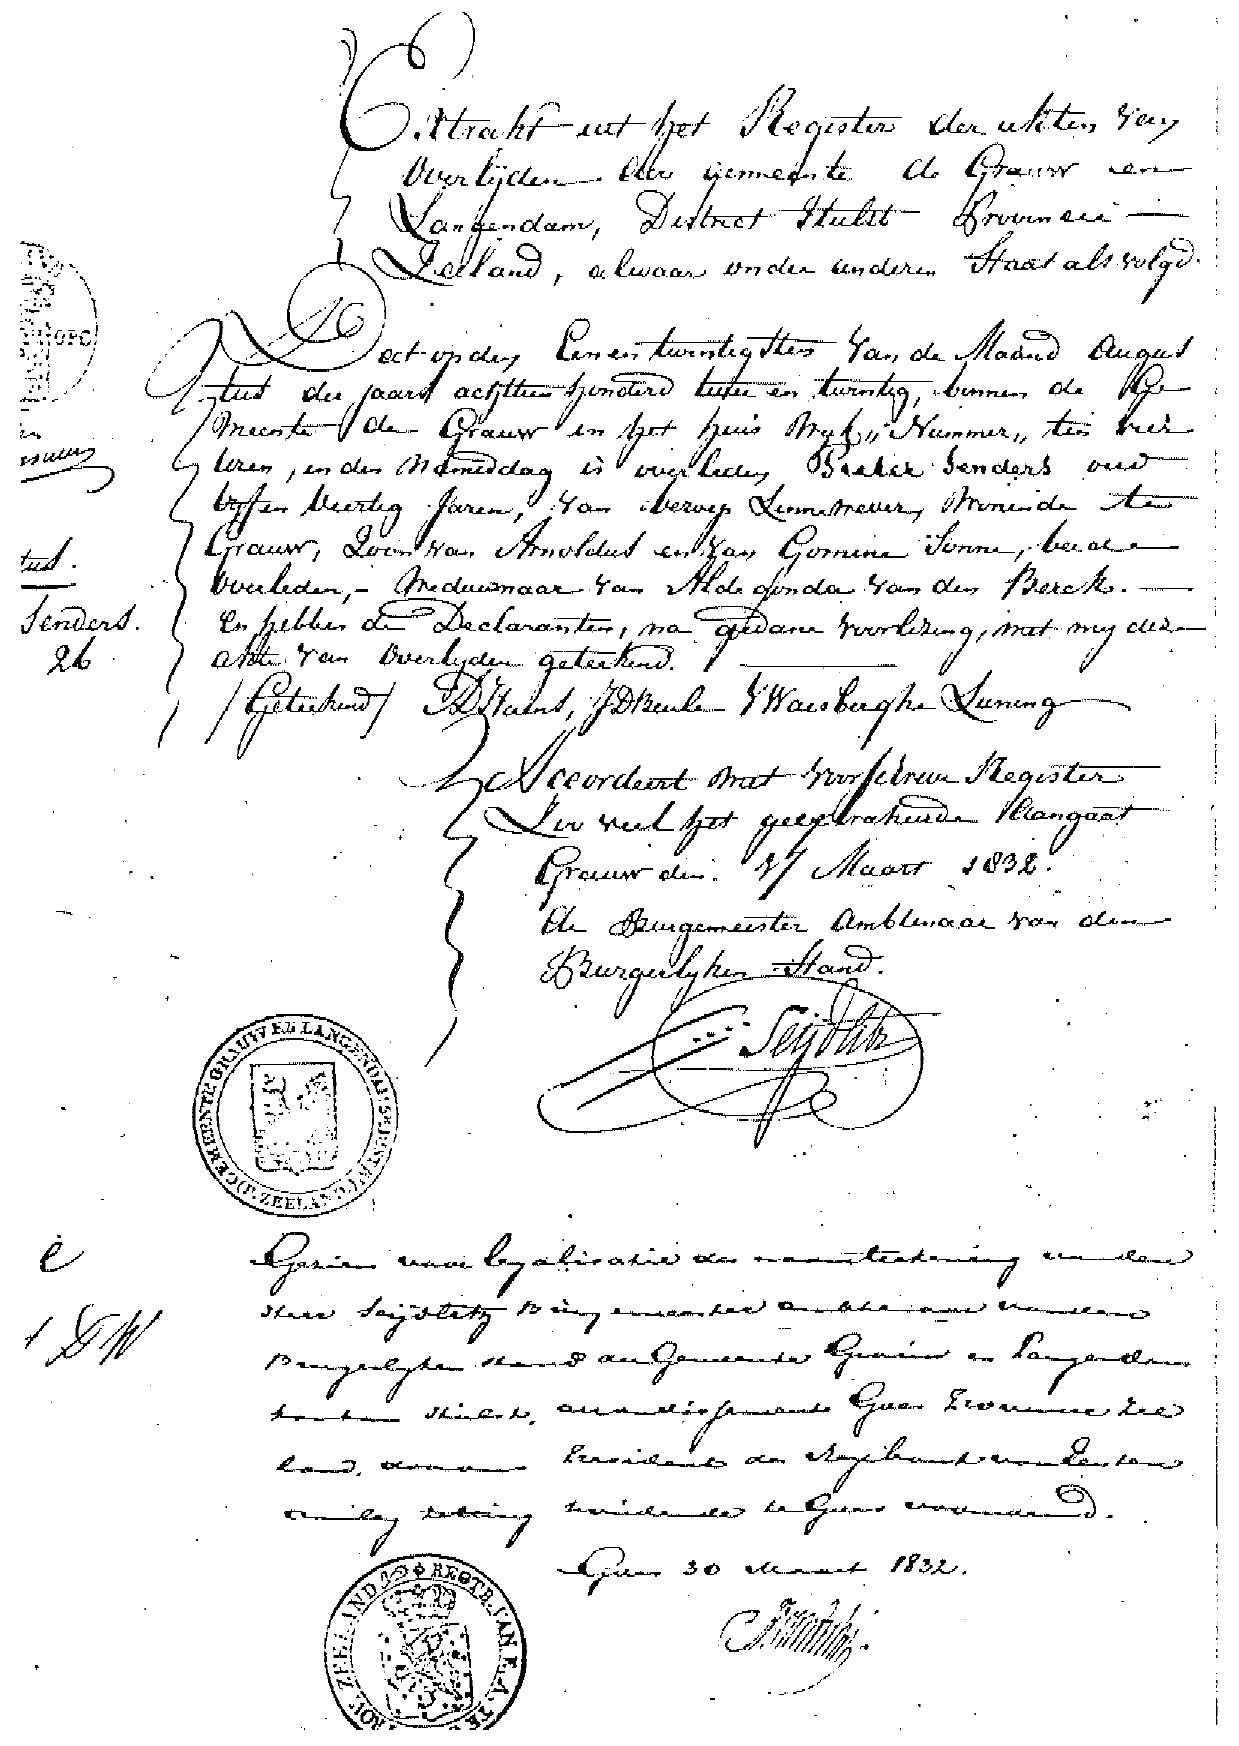 Extrakt uit het Register der akten van
Overlyden der gemeente de Grauw en
Langendam, District Hulst Provincie
Zeeland, alwaar onder anderen Staat als volgd.
op den Eenentwintigsten van de Maand Augus
tus des jaars achttien honderd twee en twintig, binnen de Ge
meente de Grauw in het huis Wyk „ Nummer „ ten vier
Uren, in den Namiddag is overleden Senders oud
vyf en Veertig Jaren, van beroep Linnewever, Wonende te
Grauw, Zoon van Arnoldus en van Sonne, beide
Overleden, – Weduwnaar van Aldegonda van den Berck.
En hebben de Declaranten, na gedane voorlezing, met my deze
akte van Overlyden geteekend.
/Geteekend/ J D Beule V Waesberghe Luning
Accordeert met voorschreve Register
Zoo veel het geextraheerde aangaat
Grauw den 27 Maart 1832.
de Burgemeester Ambtenaar van den
Burgerlyken Stand.
Seijdlitz
tus.
Senders.
26
GEMEENTE GRAUW EN LANGENDAM
(P. ZEELAND.)
Gezien voor legalisatie der naamteekening van den
Heer Seijdlitz Burgemeester ambtenaar van den
Burgerlyken stand der Gemeente Grauw en Langendam
kanton Hulst, arrondissement Goes Provincie Zee
land, door ons President der Regtbank van Eersten
aanleg zitting houdende te Goes voornoemd.
Goes 30 Maart 1832.
PROV. ZEELAND REGTB. VAN E. A. TE